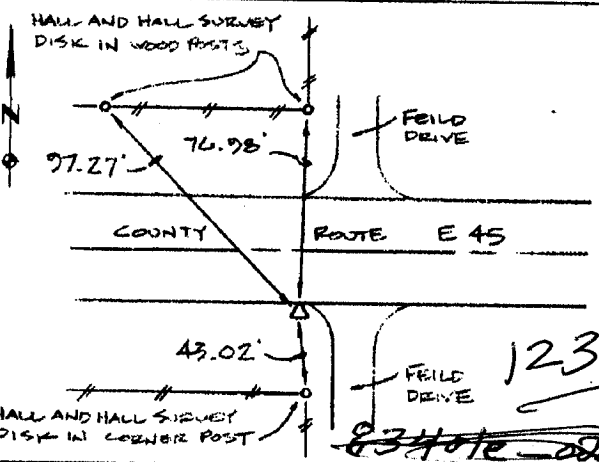 HALL AND HALL SURVEY
DISK IN WOOD POSTS
N
FEILD
DRIVE
97.27'
COUNTY ROUTE E 45
43.02'
FEILD
DRIVE
123
HALL AND HALL SURVEY
DISK IN CORNER POST